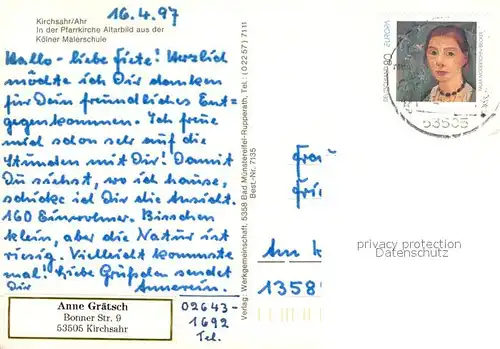 16.4.97
Kirchsahr/Ahr
In der Pfarrkirche Altarbild aus der
Kölner Malerschule
Hallo - liebe Fiete! Herzlich
möchte ich Dir danken
für Dein freundliches Ent-
gegenkommen. Ich freue
mich schon sehr auf die
Stunden mit Dir! Damit
Du siehst, wo ich hause,
schicke ich Dir die Ansicht.
160 Einwohner. Bisschen
klein, aber die Natur ist
riesig. Vielleicht kommste
mal! Liebe Grüßchen sendet
Dir Annerein.
Anne Grätsch
Bonner Str. 9
53505 Kirchsahr
02643-
1692
Tel.
Verlag: Werkgemeinschaft, 5358 Bad Münstereifel-Rupperath, Tel.: (02257) 7111
Best.-Nr. 7135
80
53505
Frau
Am K
1358
privacy protection
Datenschutz